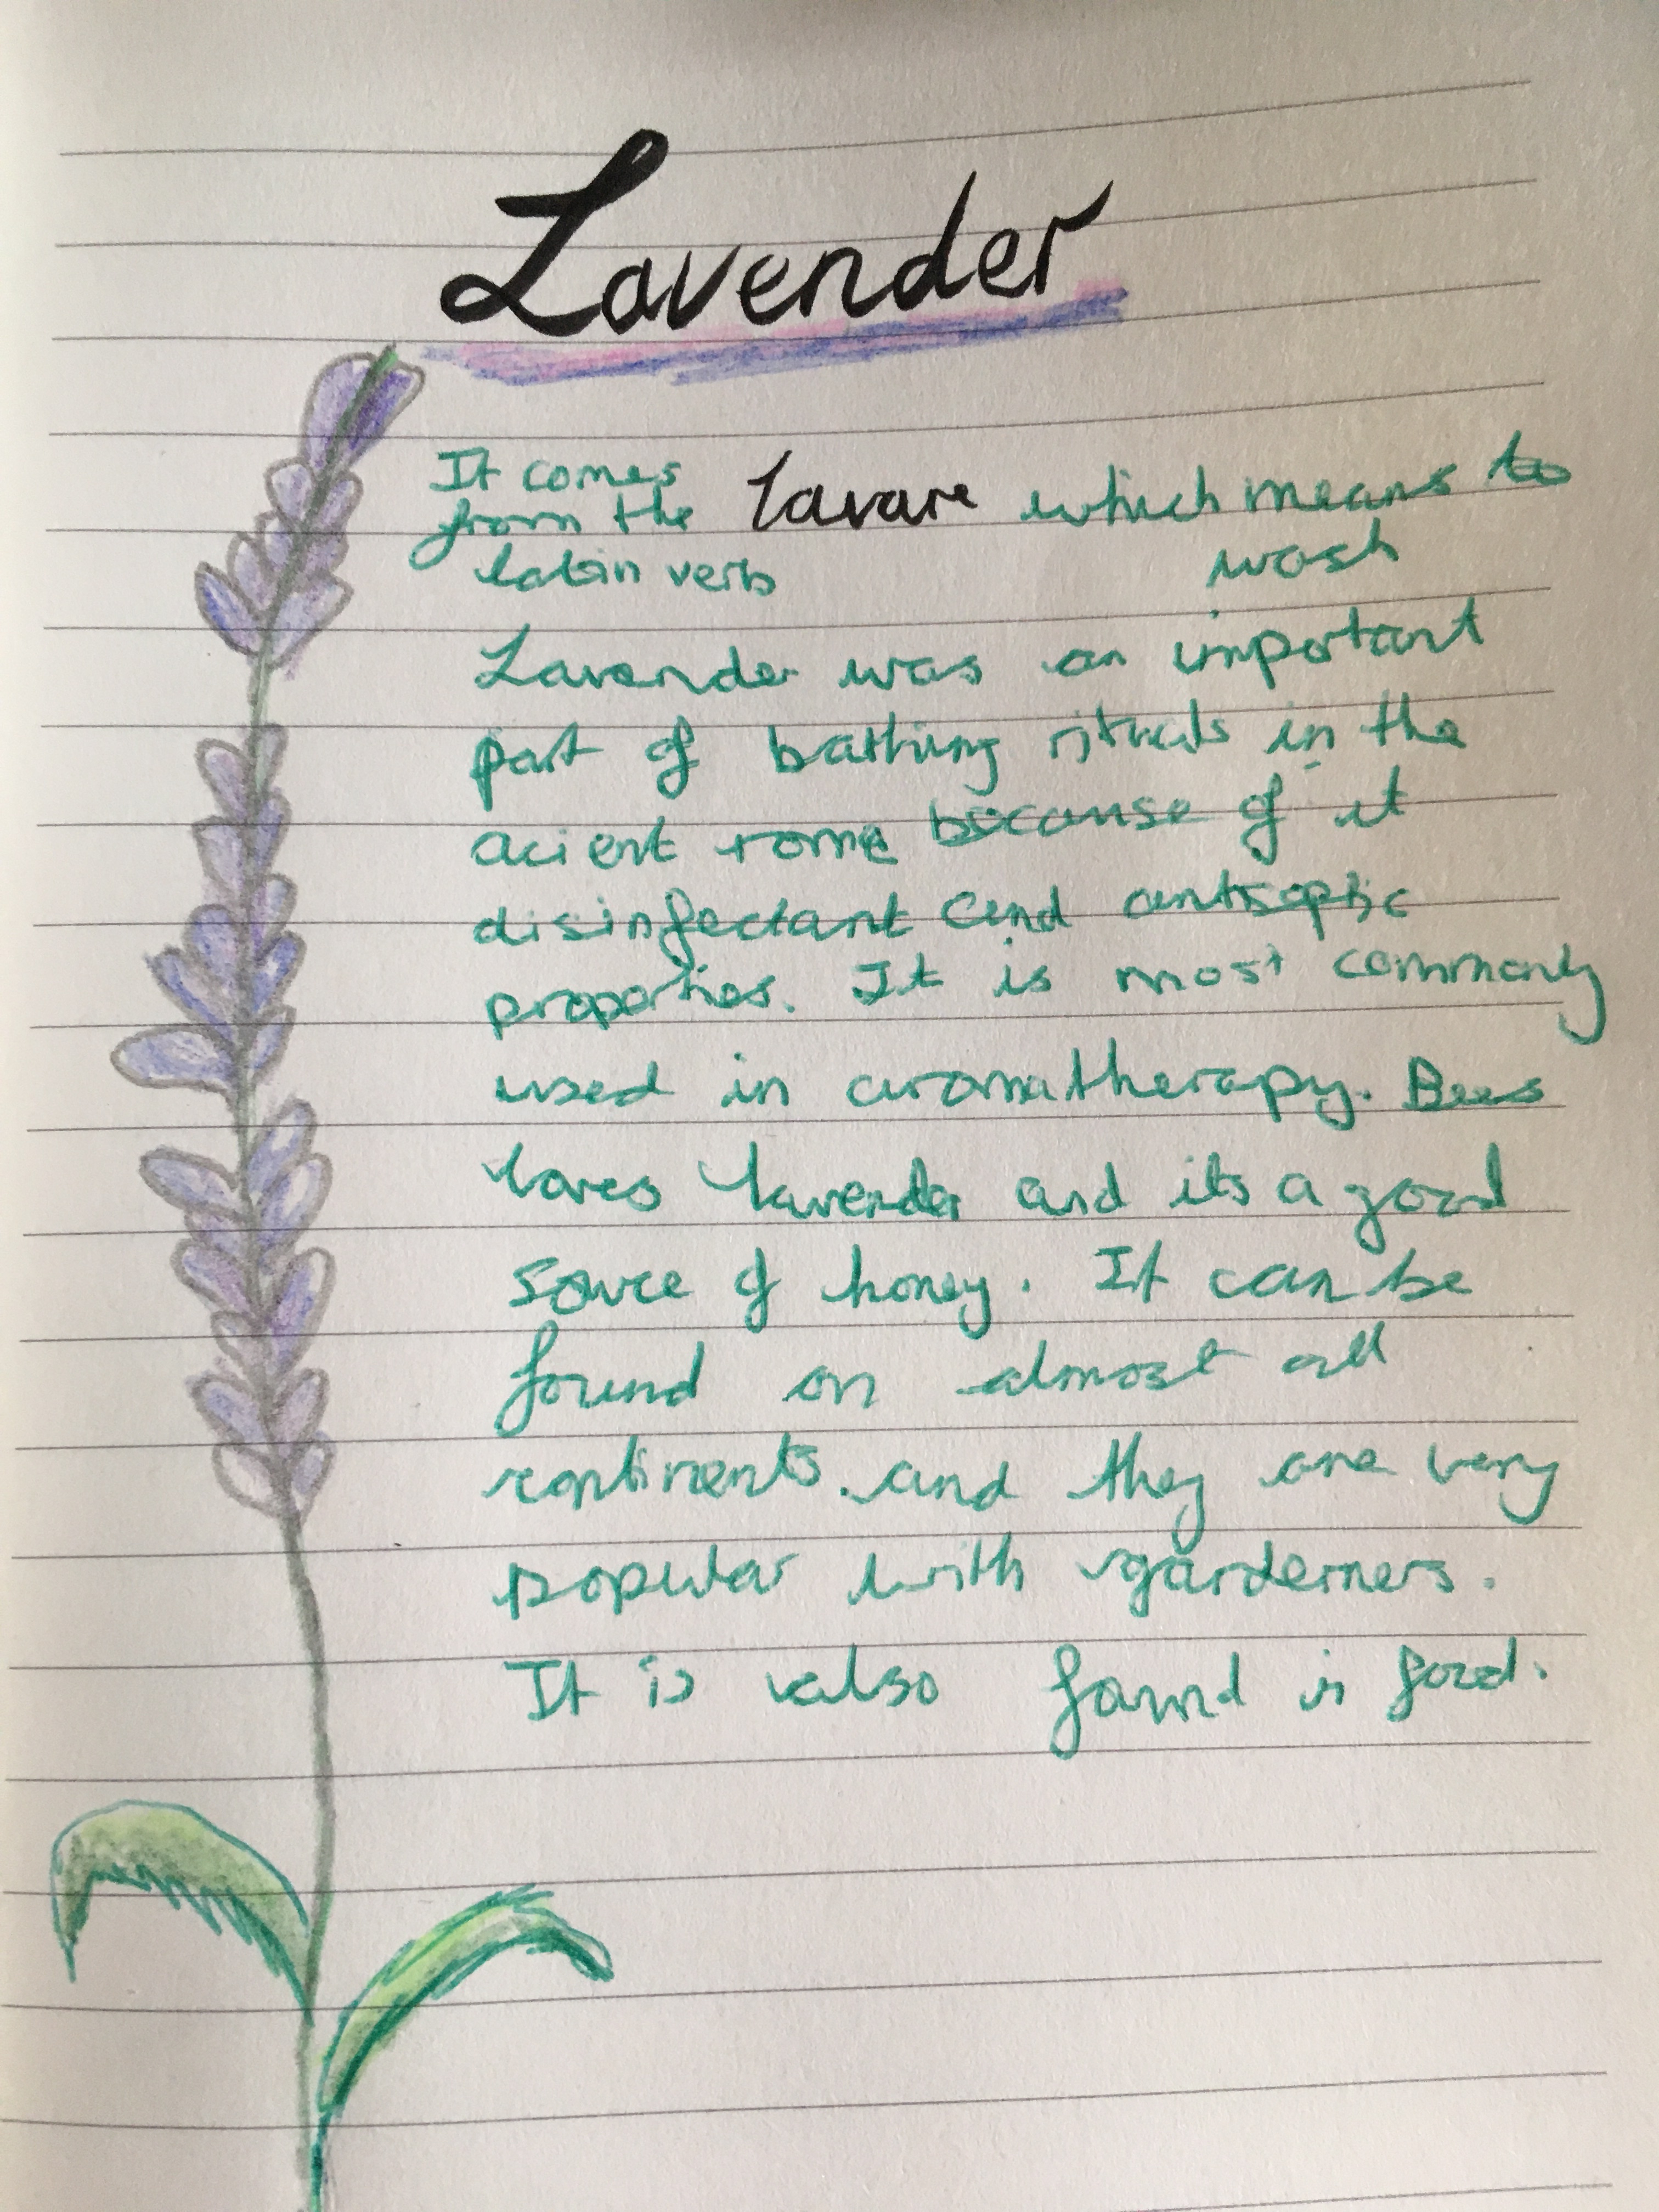 Lavender
It comes
from the lavare which means to
latin verb wash
Lavender was an important
part of bathing rituals in the
acient rome because of it
disinfectant and antiseptic
properties. It is most commonly
used in aromatherapy. Bees
loves lavender and its a good
source of honey. It can be
found on almost all
continents. and they are very
popular with garderners.
It is also found in food.